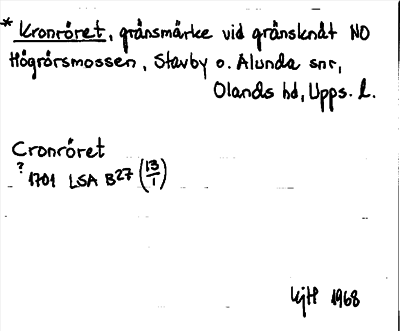 * Kronröret, gränsmärke vid gränsknät NO
Högrörsmossen, Stavby o. Alunda snr,
Olands hd, Upps. l.
Cronröret
? 1701 LSA B27 (13/1)
1968